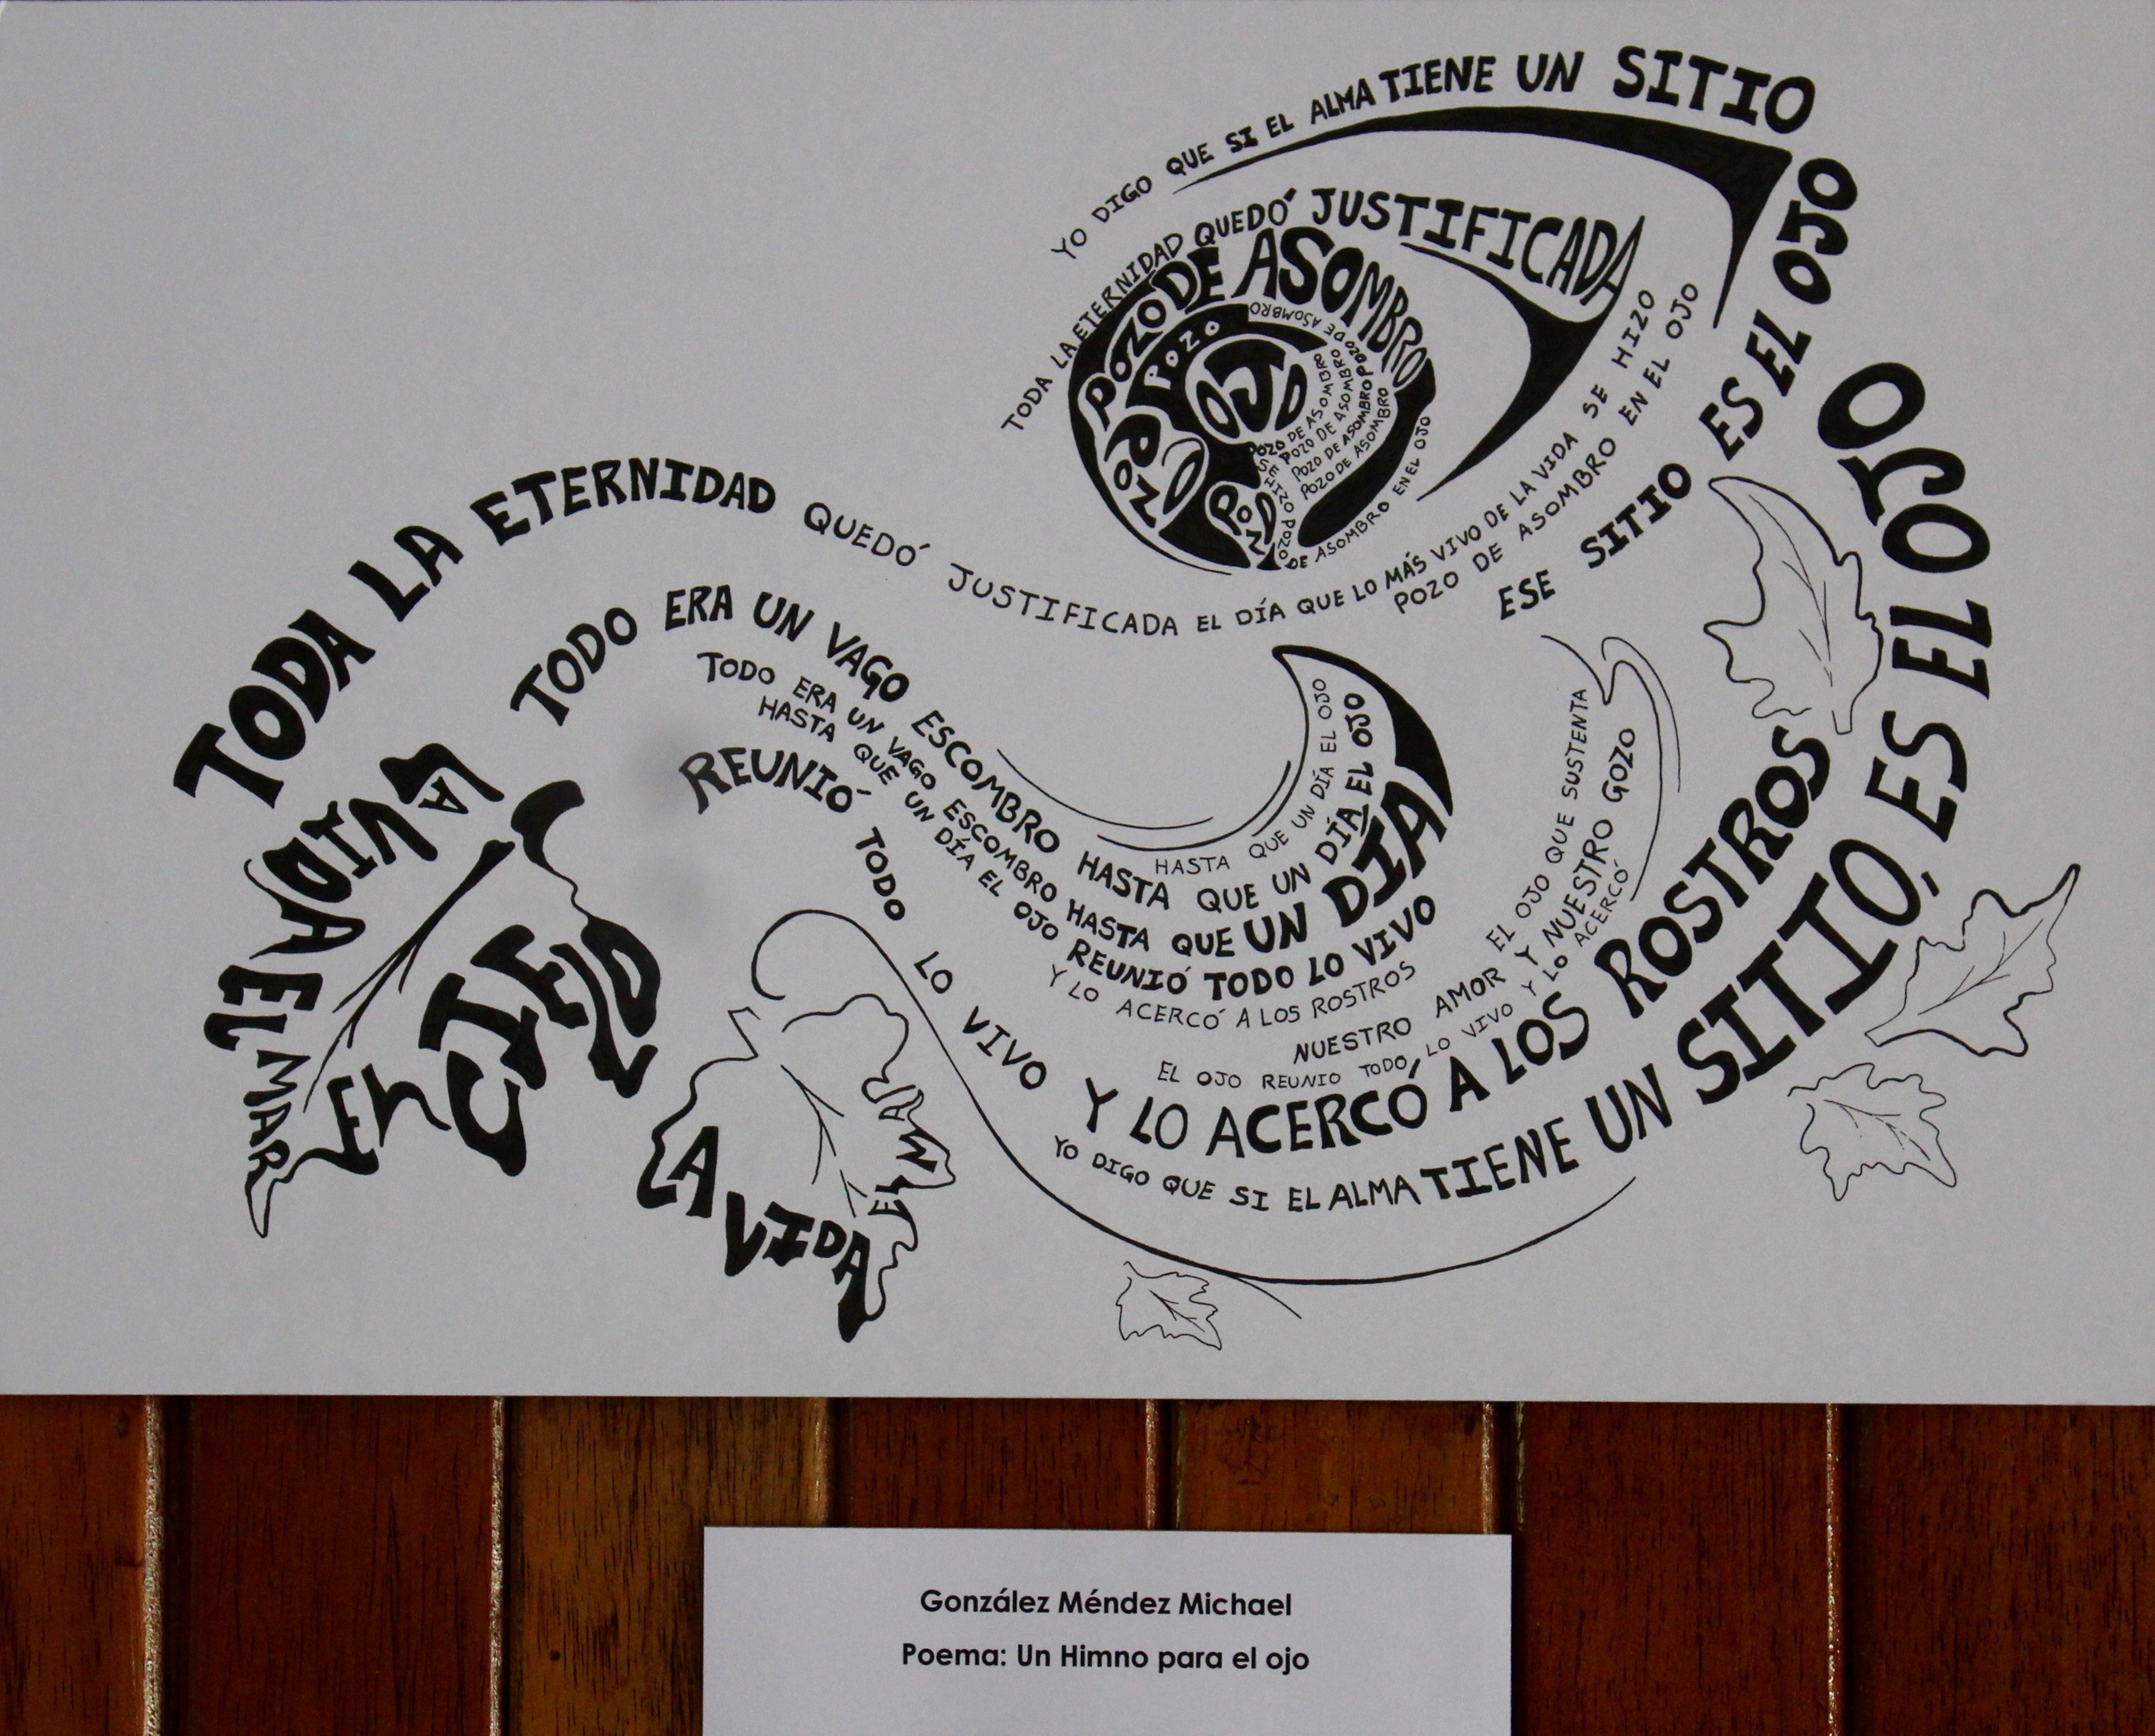 YO DIGO QUE SI EL ALMA TIENE UN SITIO
ESE SITIO ES EL OJO
TODA LA ETERNIDAD QUEDÓ JUSTIFICADA
POZO DE ASOMBRO
POZO
ASOMBRO DE POZO
OJO
POZO
POZO
POZO DE ASOMBRO
POZO DE ASOMBRO
POZO DE ASOMBRO
POZO DE ASOMBRO
SE HIZO POZO DE ASOMBRO EN EL OJO
TODA LA ETERNIDAD QUEDÓ JUSTIFICADA EL DÍA QUE LO MÁS VIVO DE LA VIDA SE HIZO
POZO DE ASOMBRO EN EL OJO
TODO ERA UN VAGO ESCOMBRO HASTA QUE UN DÍA EL OJO
HASTA QUE UN DÍA EL OJO
TODO ERA UN VAGO ESCOMBRO HASTA QUE UN DÍA
HASTA QUE UN DÍA EL OJO REUNIÓ TODO LO VIVO
Y LO ACERCÓ A LOS ROSTROS
EL OJO QUE SUSTENTA
NUESTRO AMOR Y NUESTRO GOZO
EL OJO REUNIO TODO LO VIVO Y LO ACERCÓ
REUNIÓ TODO LO VIVO Y LO ACERCÓ A LOS ROSTROS
YO DIGO QUE SI EL ALMA TIENE UN SITIO, ES EL OJO
LA VIDA
EL MAR
EL CIELO
LA VIDA
EL MAR
González Méndez Michael
Poema: Un Himno para el ojo